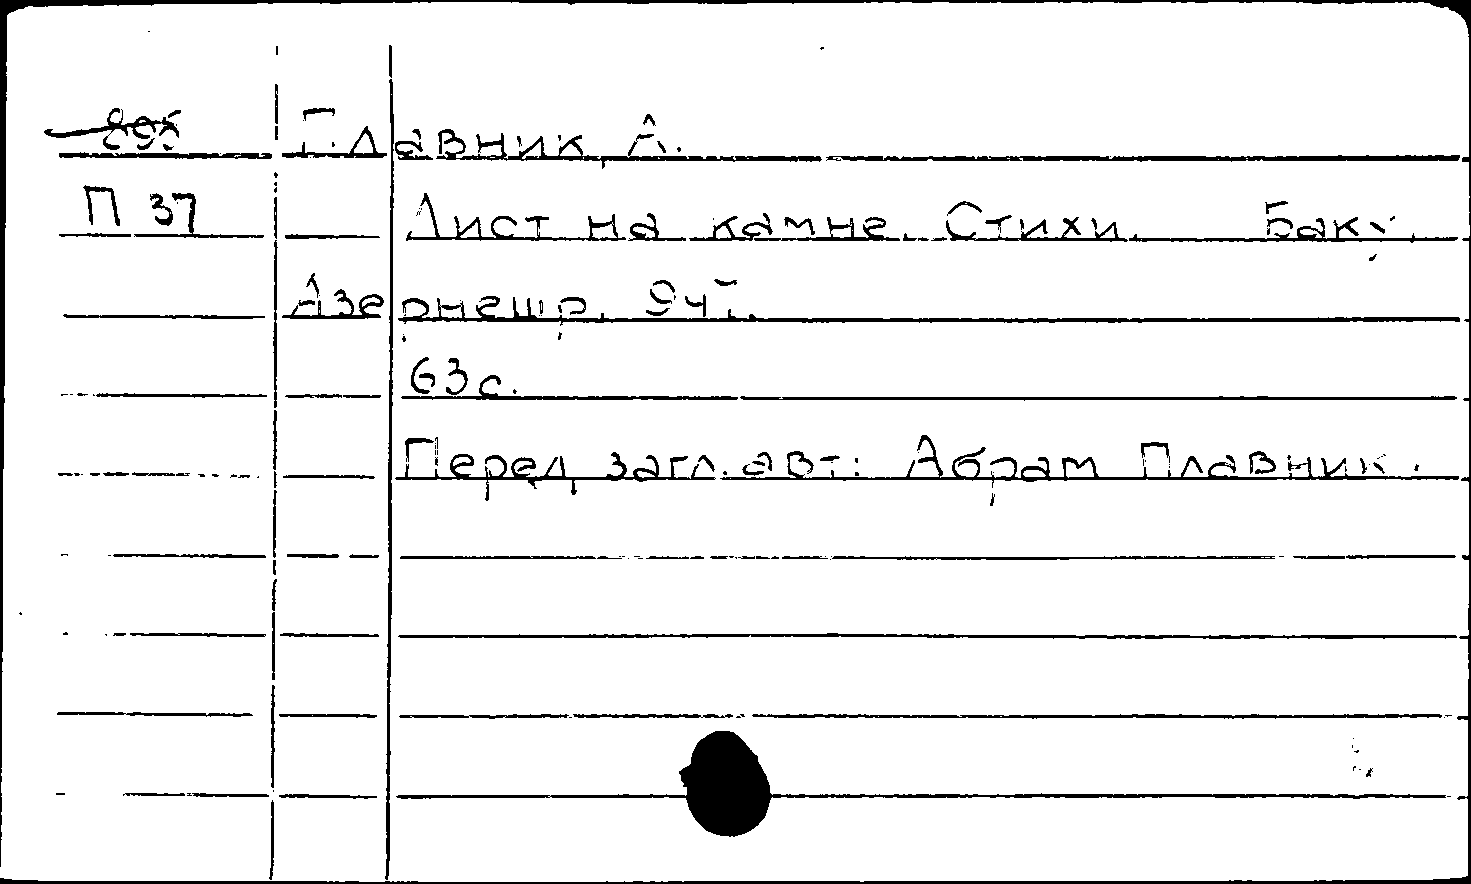 895 Плавник, А.
П 37 Лист на камне. Стихи. Баку,
Азернешр,
63 с.
Перед загл. авт: Абрам Плавник.